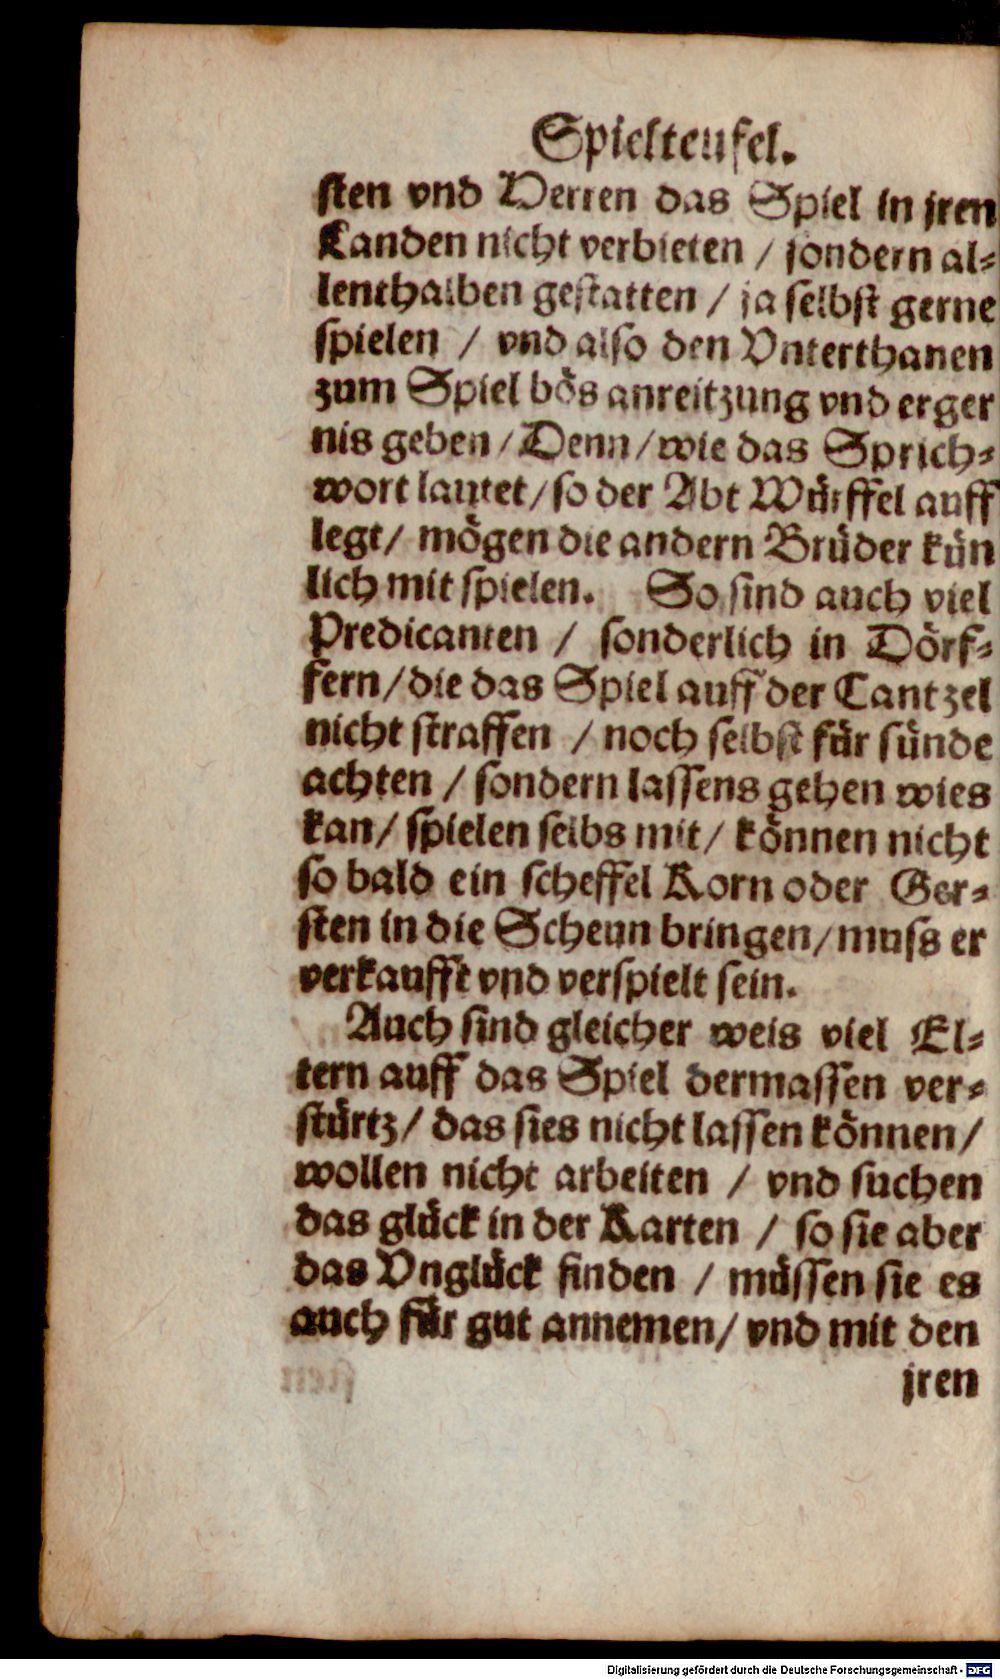 Spielteufel.
sten vnd Herren das Spiel in jren
Landen nicht verbieten / sondern al⸗
lenthalben gestatten / ja selbst gerne
spielen / vnd also den Vnterthanen
zum Spiel bös anreitzung vnd erger
nis geben / Denn / wie das Sprich⸗
wort lautet / so der Abt Würffel auff
legt / mögen die andern Brüder kün
lich mit spielen. So sind auch viel
Predicanten / sonderlich in Dörf⸗
fern / die das Spiel auff der Cantzel
nicht straffen / noch selbst für sünde
achten / sondern lassens gehen wies
kan / spielen selbs mit / können nicht
so bald ein scheffel Korn oder Ger⸗
sten in die Scheun bringen / muss er
verkaufft vnd verspielt sein.
Auch sind gleicher weis viel El⸗
tern auff das Spiel dermassen ver⸗
stürtz / das sies nicht lassen können /
wollen nicht arbeiten / vnd suchen
das glück in der Karten / so sie aber
das Vnglück finden / müssen sie es
auch für gut annemen / vnd mit den
jren
Digitalisierung gefördert durch die Deutsche Forschungsgemeinschaft - DFG